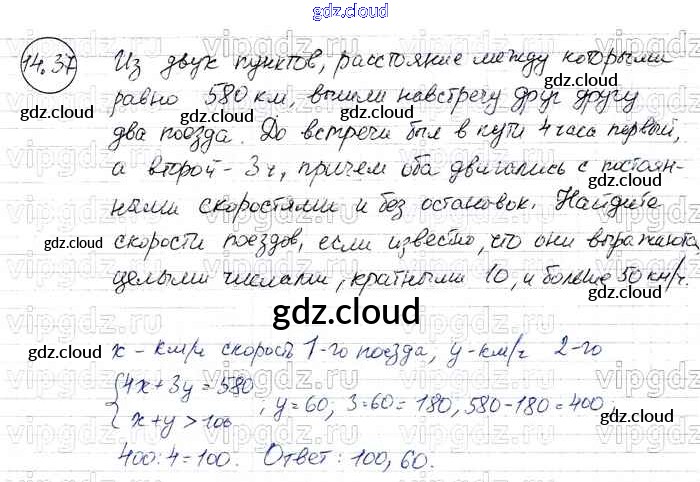 gdz.cloud
14.37
Из двух пунктов, расстояние между которыми
равно 580 км, вышли навстречу друг другу
два поезда. До встречи был в пути 4 часа первый,
а второй - 3 ч, причем оба двигались с постоян-
ными скоростями и без остановок. Найдите
скорости поездов, если известно, что они выражаются
целыми числами, кратными 10, и больше 50 км/ч.
gdz.cloud
x - км/ч скорость 1-го поезда, y - км/ч 2-го
{4x + 3y = 580
x + y > 100 , y = 60; 3=60 = 180, 580-180 = 400,
400:4 = 100. Ответ: 100, 60.